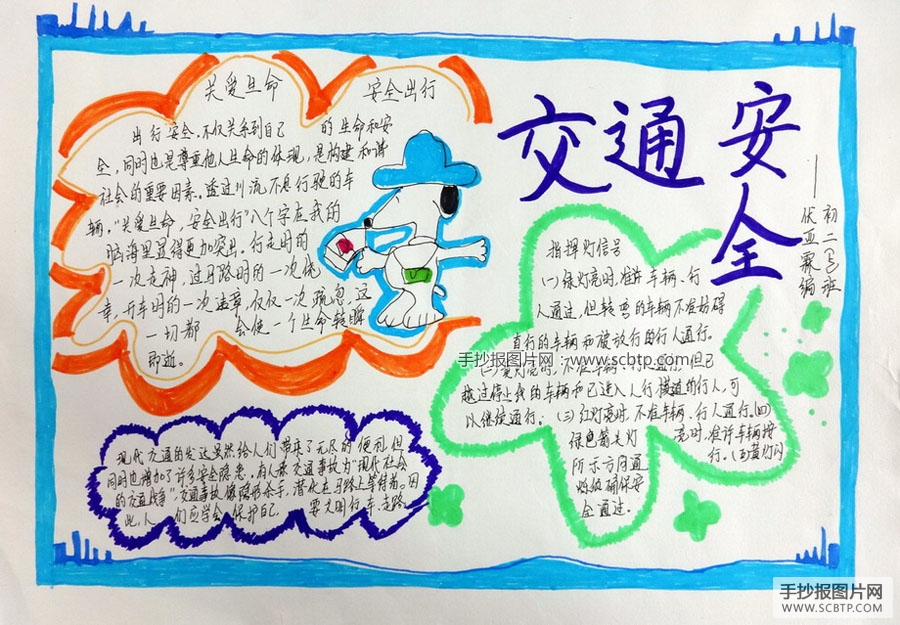 交通安全
——初二5班
伏亚霖编
关爱旦命 安全出行
出行安全.不仅关系到自己 的生命和安
全,同时也是尊重他人生命的体现,是构建和谐
社会的重要因素。透过川流不息行驶的车
辆,"关爱旦命,安全出行"八个字在我的
脑海里显得更加突出.行走时的
一次走神,过马路时的一次侥
幸,开车时的一次违章,仅仅一次疏忽,这
一切都 会使一个生命转瞬
即逝。
指挥灯信号
(一)绿灯亮时,准许车辆、行
人通过,但转弯的车辆不准妨碍
直行的车辆和被放行的行人通行。
(二)黄灯亮时,不准车辆、行人通行,但已
越过停止线的车辆和已进入人行横道的行人,可
以继续通行。(三)红灯亮时,不准车辆、行人通行。(四)
绿色箭头灯 亮时,准许车辆按
所示方向通 行。(五)黄灯闪
烁 确保安
全通过。
现代交通的发达虽然给人们带来了无尽的便利,但
同时也增加了许多安全隐患,有人称交通事故为"现代社会
的交通战争",交通事故像隐形杀手,潜伏在马路上等待着。因
此,人们应学会保护自己 要文明行车、走路
手抄报图片网：www.scbtp.com
手抄报图片网
WWW.SCBTP.COM